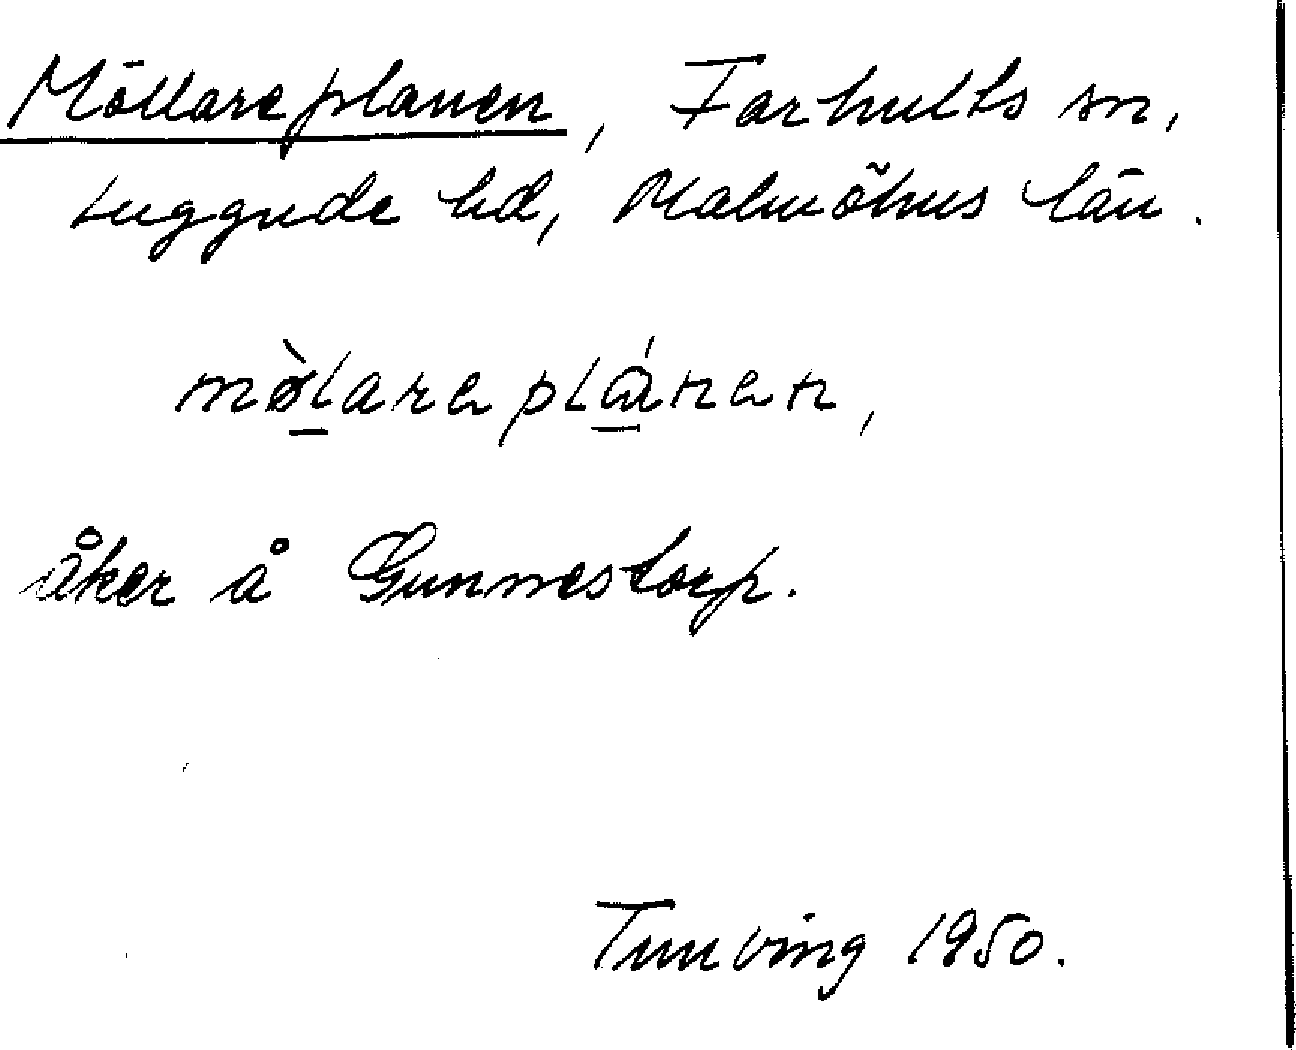 Möllareplanen, Farhults sn,
Luggude hd, Malmöhus län.
mø̀lareplánen,
åker å Gunnestorp.
Tunving 1950.